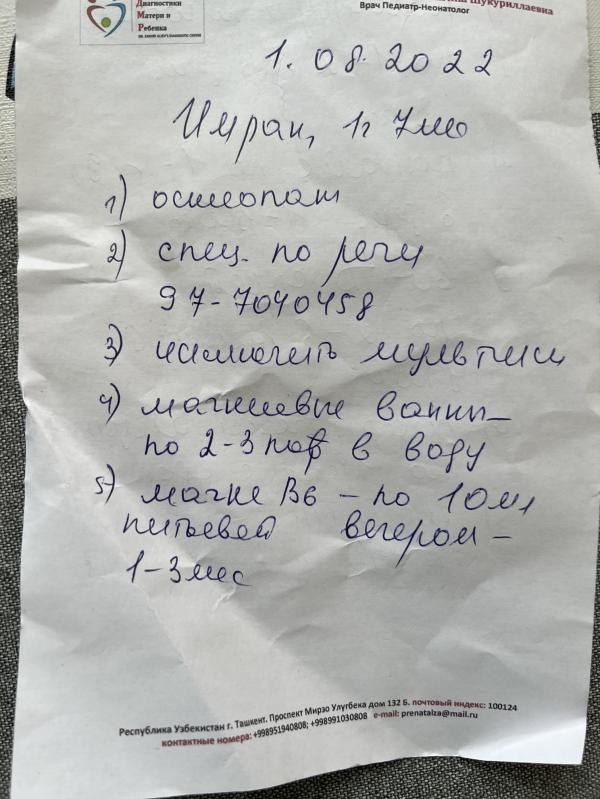 Диагностики
Матери и
Ребенка
Шукуриллаевна
Врач Педиатр-Неонатолог
1.08.2022
Имран, 1г 7мо
1) остеопат
2) спец. по речи
97-7040458
3) исключить мультики
4) магниевые ванны –
по 2-3 пор в воду
5) магне В6 – по 10мл
питьевой вечером –
1-3мес
Республика Узбекистан г. Ташкент. Проспект Мирзо Улугбека дом 132 Б. почтовый индекс: 100124
контактные номера: +998951940808; +998991030808 e-mail: prenatalza@mail.ru